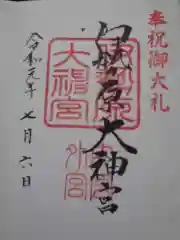 奉祝御大礼
伊勢原大神宮
大神宮
外宮
令和元年七月六日